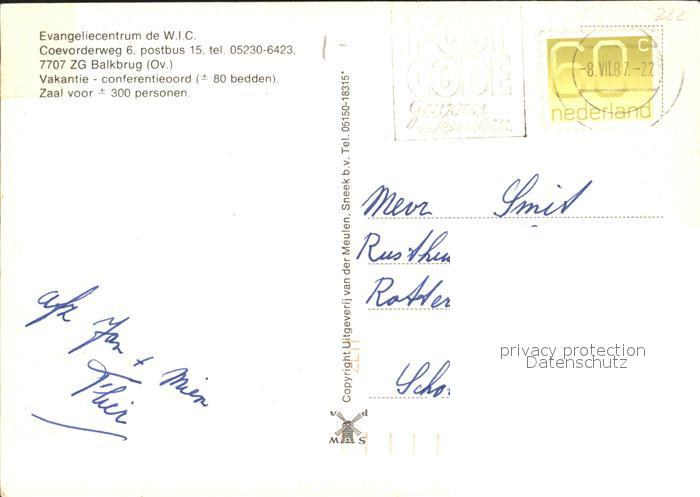 Evangeliecentrum de W.I.C.
Coevorderweg 6, postbus 15, tel. 05230-6423,
7707 ZG Balkbrug (Ov.)
Vakantie - conferentieoord (± 80 bedden).
Zaal voor ± 300 personen.
222
POST
CODE
gewoon
60c
-8.VII.87.-22
nederland
Copyright Uitgeverij van der Meulen, Sneek b.v. Tel. 05150-18315*
Mevr Smit
Rusthu
Rotter
Scho
afz Jan + Mien
privacy protection
Datenschutz
v d
M S